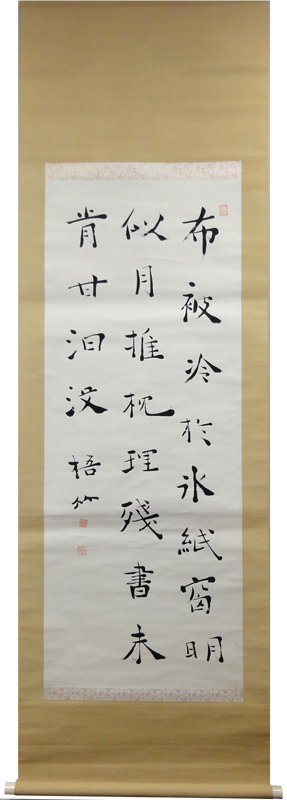 布被冷於氷紙窗明
似月推枕理殘書未
肯甘汨沒 梧竹